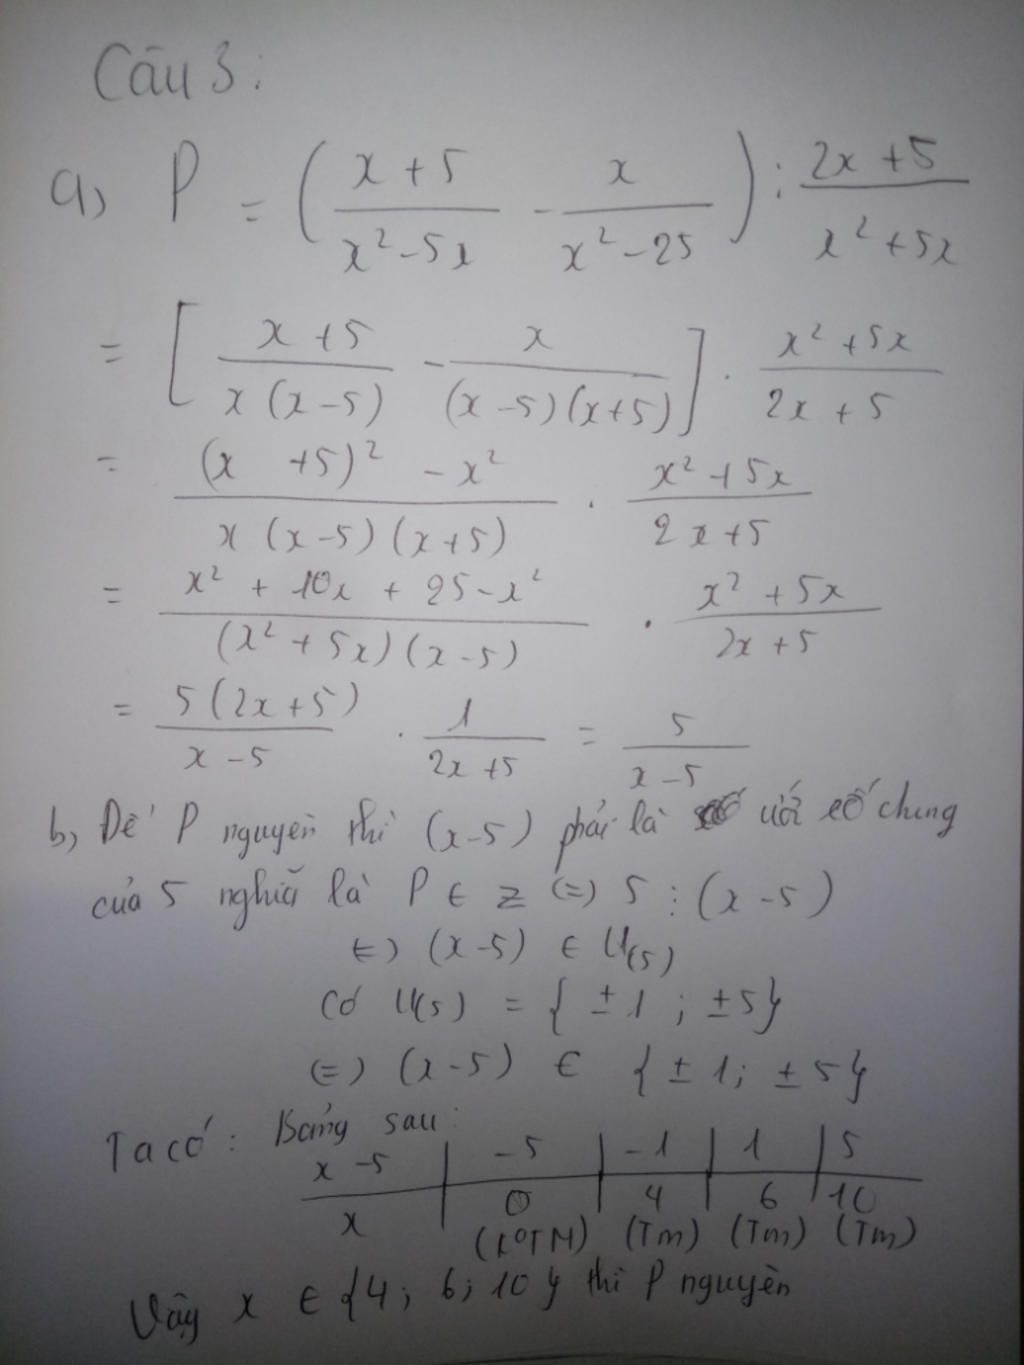 Câu 3:
a) P = ( (x + 5)/(x² - 5x) - x/(x² - 25) ) : (2x + 5)/(x² + 5x)
= [ (x + 5)/(x (x - 5)) - x/((x - 5)(x + 5)) ] . (x² + 5x)/(2x + 5)
= ((x + 5)² - x²)/(x (x - 5) (x + 5)) . (x² + 5x)/(2x + 5)
= (x² + 10x + 25 - x²)/((x² + 5x) (x - 5)) . (x² + 5x)/(2x + 5)
= 5 (2x + 5)/(x - 5) . 1/(2x + 5) = 5/(x - 5)
b) Để P nguyên thì (x - 5) phải là ước số chung
của 5 nghĩa là P ∈ Z (=) 5 ⋮ (x - 5)
(=) (x - 5) ∈ Ư(5)
Có Ư(5) = { ± 1 ; ± 5}
(=) (x - 5) ∈ { ± 1; ± 5}
Ta có : Bảng sau :
x - 5 | - 5 | - 1 | 1 | 5
x | 0 | 4 | 6 | 10
(KOTM) (Tm) (Tm) (Tm)
Vậy x ∈ {4 ; 6 ; 10 } thì P nguyên